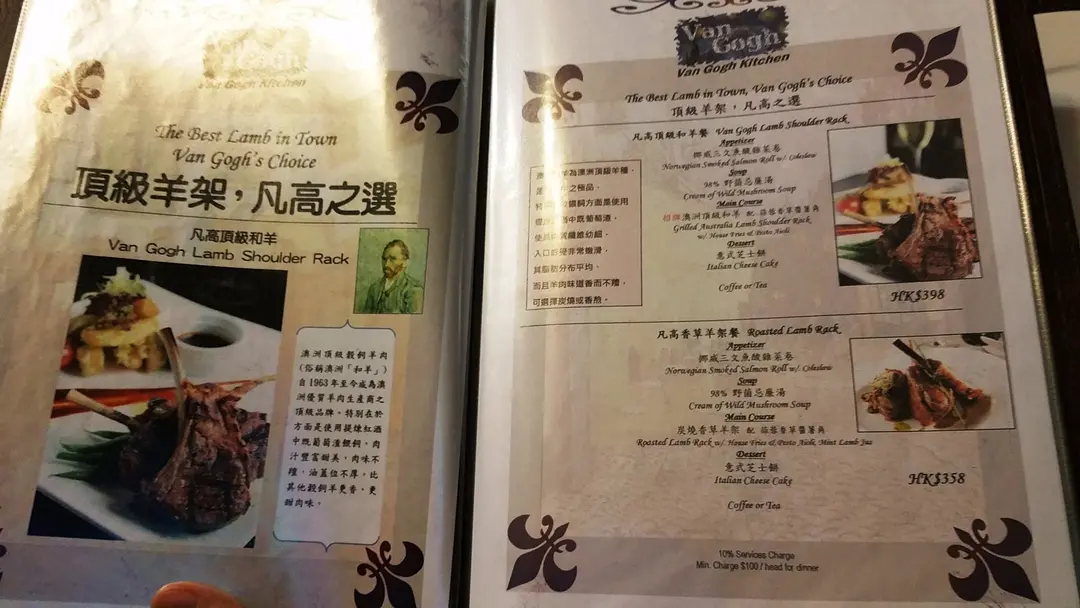 Van Gogh Kitchen
The Best Lamb in Town
Van Gogh's Choice
頂級羊架，凡高之選
凡高頂級和羊
Van Gogh Lamb Shoulder Rack
澳洲頂級穀飼羊肉
(俗稱澳洲「和羊」)
自1963年至今成為澳
洲優質羊肉生產商之
頂級品牌。特別在於
方面是使用提煉紅酒
中既葡萄渣餵飼。肉
汁豐富甜美，肉味不
羶，油蓋位不厚。比
其他穀飼羊更香，更
甜肉味。
Van
Gogh
Van Gogh Kitchen
The Best Lamb in Town, Van Gogh's Choice
頂級羊架，凡高之選
凡高頂級和羊餐 Van Gogh Lamb Shoulder Rack
Appetizer
挪威三文魚酸雜菜卷
Norwegian Smoked Salmon Roll w/. Coleslaw
Soup
98% 野菌忌廉湯
Cream of Wild Mushroom Soup
Main Course
招牌澳洲頂級和羊 配 蒜蓉香草醬薯角
Grilled Australia Lamb Shoulder Rack
w/. House Fries & Pesto Aioli
Dessert
意式芝士餅
Italian Cheese Cake
Coffee or Tea
羊為澳洲頂級羊種，
之極品。
餵飼方面是使用
中既葡萄渣，
纖維幼細，
入口 非常嫩滑，
其脂肪分布平均，
而且羊肉味道香而不羶，
可選擇炭燒或香煎。
HK$398
凡高香草羊架餐 Roasted Lamb Rack
Appetizer
挪威三文魚酸雜菜卷
Norwegian Smoked Salmon Roll w/. Coleslaw
Soup
98% 野菌忌廉湯
Cream of Wild Mushroom Soup
Main Course
炭燒香草羊架 配 蒜蓉香草醬薯角
Roasted Lamb Rack w/. House Fries & Pesto Aioli, Mint Lamb Jus
Dessert
意式芝士餅
Italian Cheese Cake
Coffee or Tea
HK$358
10% Services Charge
Min. Charge $100 / head for dinner